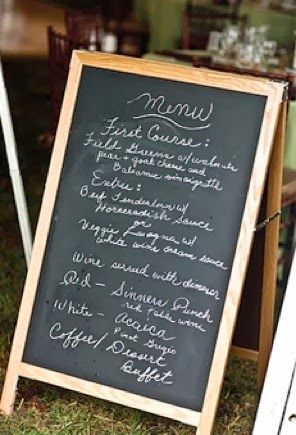 Menu
First Course:
Field Greens w/ walnuts
pear + goat cheese and
Balsamic vinaigrette
Entree:
Beef Tenderloin w/
Horseradish Sauce
or
Veggie Lasagna w/
white wine cream sauce
Wine served with dinner
Red - Sinners Punch
red table wine
White - Acacia
Pinot Grigio
Coffee/Dessert
Buffet